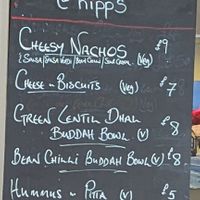 @ hipps
CHEESY NACHOS £9
(SALSA/SALSA VERDE/BEAN CHILLI/SOUR CREAM. (Veg)
CHEESE n BISCUITS (Veg) £7
GREEN LENTIL DHAL
BUDDAH BOWL (V) £8
BEAN CHILLI BUDDAH BOWL (V) £8
HUMMUS n PITTA (V) £5